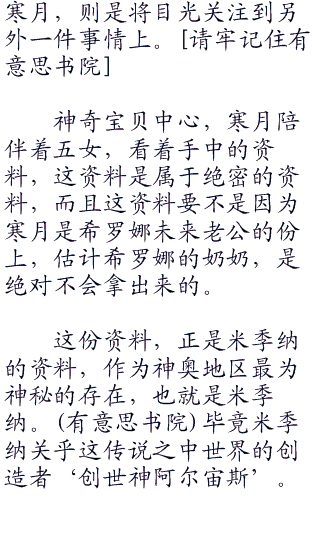 寒月，则是将目光关注到另
外一件事情上。[请牢记住有
意思书院]
神奇宝贝中心，寒月陪
伴着五女，看着手中的资
料，这资料是属于绝密的资
料，而且这资料要不是因为
寒月是希罗娜未来老公的份
上，估计希罗娜的奶奶，是
绝对不会拿出来的。
这份资料，正是米季纳
的资料，作为神奥地区最为
神秘的存在，也就是米季
纳。(有意思书院)毕竟米季
纳关乎这传说之中世界的创
造者‘创世神阿尔宙斯’。